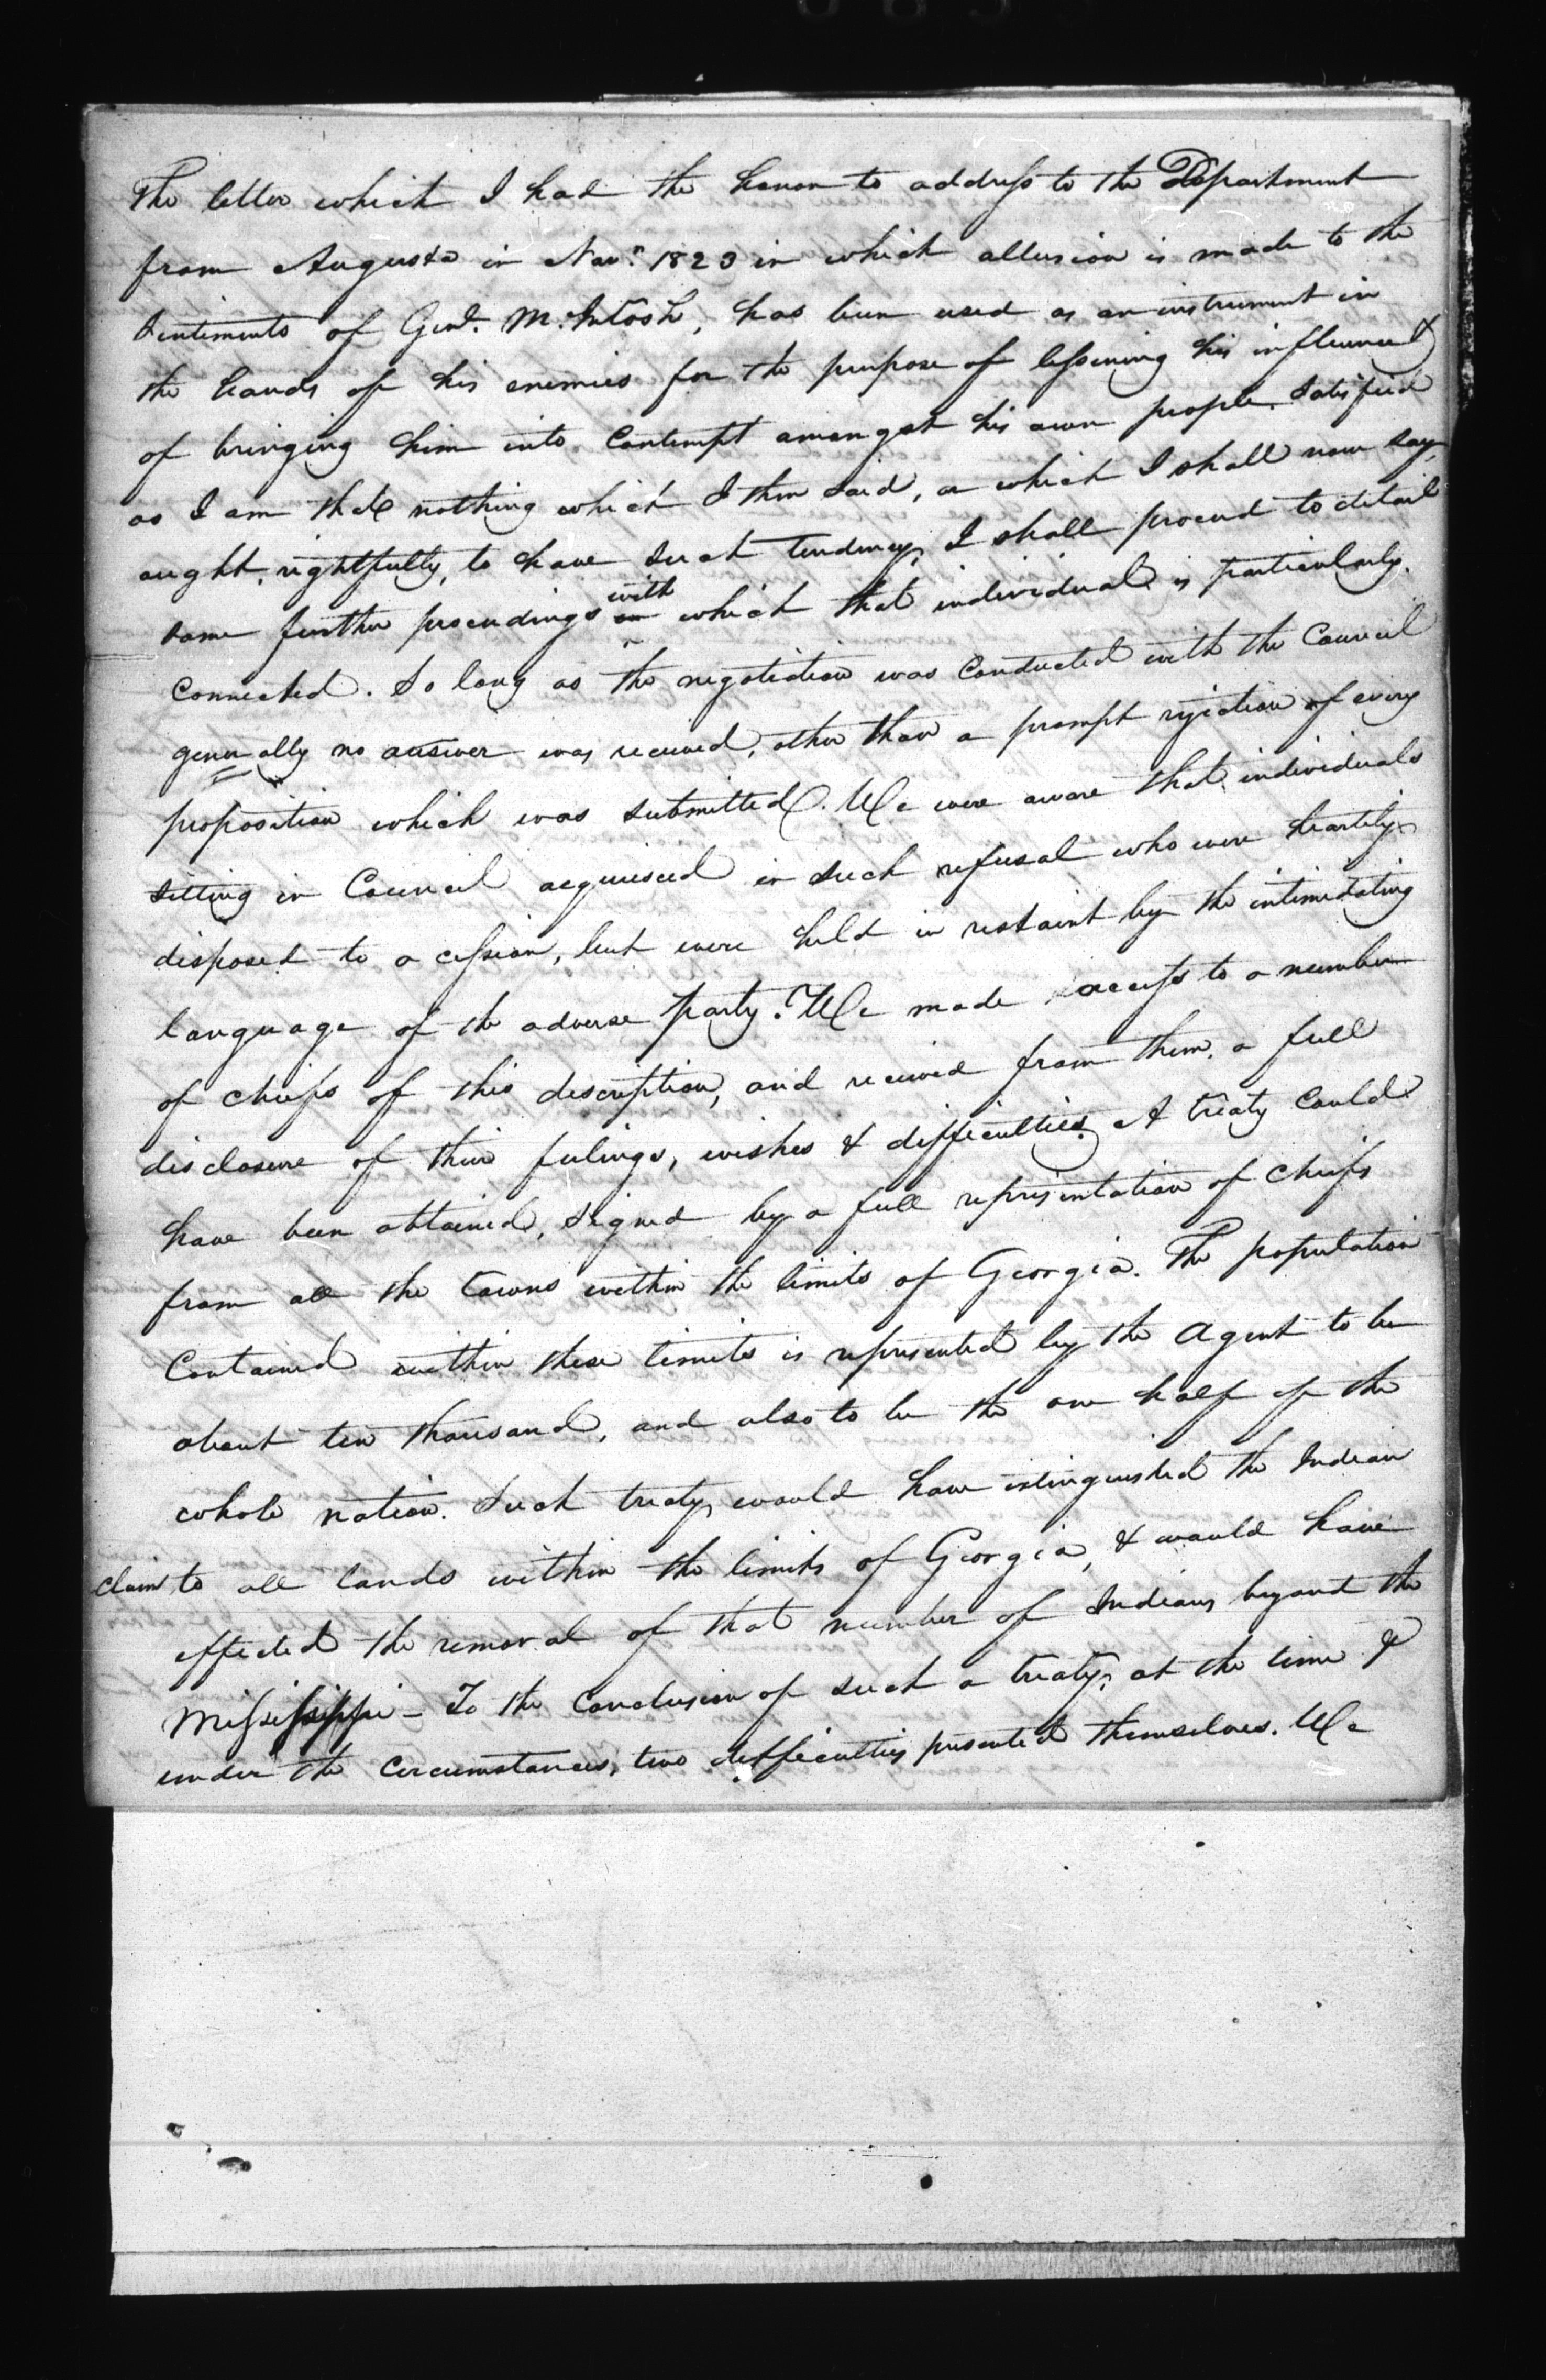 The letter which I had the honor to address to the Department
from Augusta in Nov.r 1823 in which allusion is made to the
Sentiments of Genl. McIntosh, has been used as an instrument in
the hands of his enemies for the purpose of lessening his influence &
of bringing him into Contempt amongst his own people. Satisfied
as I am that nothing which I then said, or which I shall now say,
ought, rightfully, to have such tendency, I shall proceed to detail
some further proceedings with which that individual is particularly
Connected. So long as the negotiation was Conducted with the Council
generally no answer was received, other than a prompt rejection of every
proposition which was submitted. We were aware that individuals
sitting in Council acquiesced in such refusal who were heartily
disposed to a cession, but were held in restaint by the intimidating
language of the adverse party. We made access to a number
of chiefs of this description, and received from them, a full
disclosure of their feelings, wishes & difficulties. A treaty Could
have been obtained, signed by a full representation of chiefs
from all the towns within the limits of Georgia. The population
Contained within these limits is represented by the Agent to be
about ten thousand, and also to be the one half of the
whole nation. Such treaty would have extinguished the Indian
claim to all lands within the limits of Georgia, & would have
effected the removal of that number of Indians beyond the
Mississippi - To the Conclusion of such a treaty, at the time &
under the Circumstances, two difficulties presented themselves. We